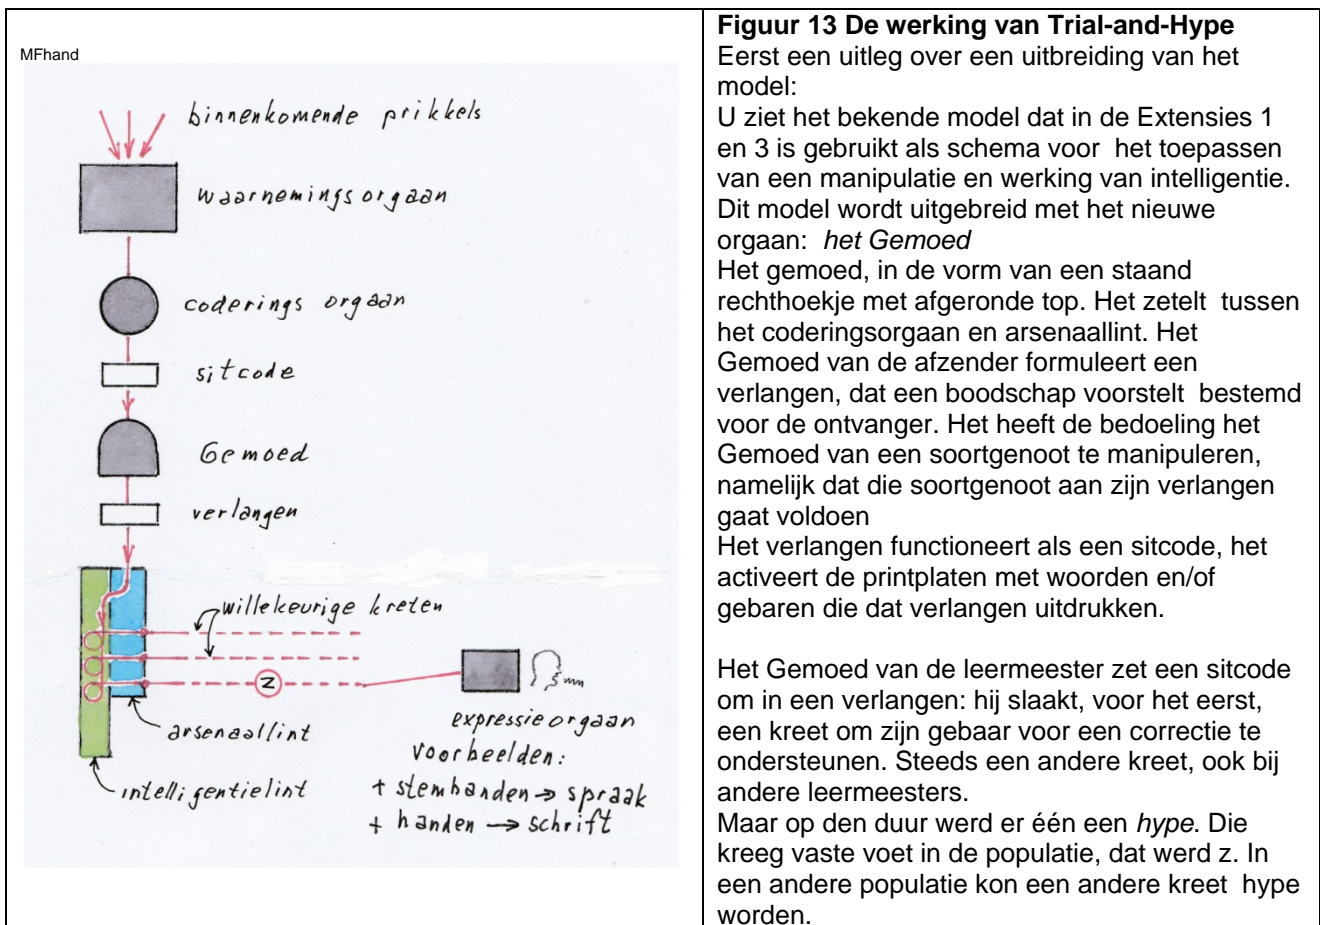 MFhand
binnenkomende prikkels
waarnemingsorgaan
coderings orgaan
sitcode
Gemoed
verlangen
willekeurige kreten
z
arsenaallint
intelligentielint
expressieorgaan
voorbeelden:
+ stembanden → spraak
+ handen → schrift
Figuur 13 De werking van Trial-and-Hype
Eerst een uitleg over een uitbreiding van het
model:
U ziet het bekende model dat in de Extensies 1
en 3 is gebruikt als schema voor het toepassen
van een manipulatie en werking van intelligentie.
Dit model wordt uitgebreid met het nieuwe
orgaan: het Gemoed
Het gemoed, in de vorm van een staand
rechthoekje met afgeronde top. Het zetelt tussen
het coderingsorgaan en arsenaallint. Het
Gemoed van de afzender formuleert een
verlangen, dat een boodschap voorstelt bestemd
voor de ontvanger. Het heeft de bedoeling het
Gemoed van een soortgenoot te manipuleren,
namelijk dat die soortgenoot aan zijn verlangen
gaat voldoen
Het verlangen functioneert als een sitcode, het
activeert de printplaten met woorden en/of
gebaren die dat verlangen uitdrukken.
Het Gemoed van de leermeester zet een sitcode
om in een verlangen: hij slaakt, voor het eerst,
een kreet om zijn gebaar voor een correctie te
ondersteunen. Steeds een andere kreet, ook bij
andere leermeesters.
Maar op den duur werd er één een hype. Die
kreeg vaste voet in de populatie, dat werd z. In
een andere populatie kon een andere kreet hype
worden.